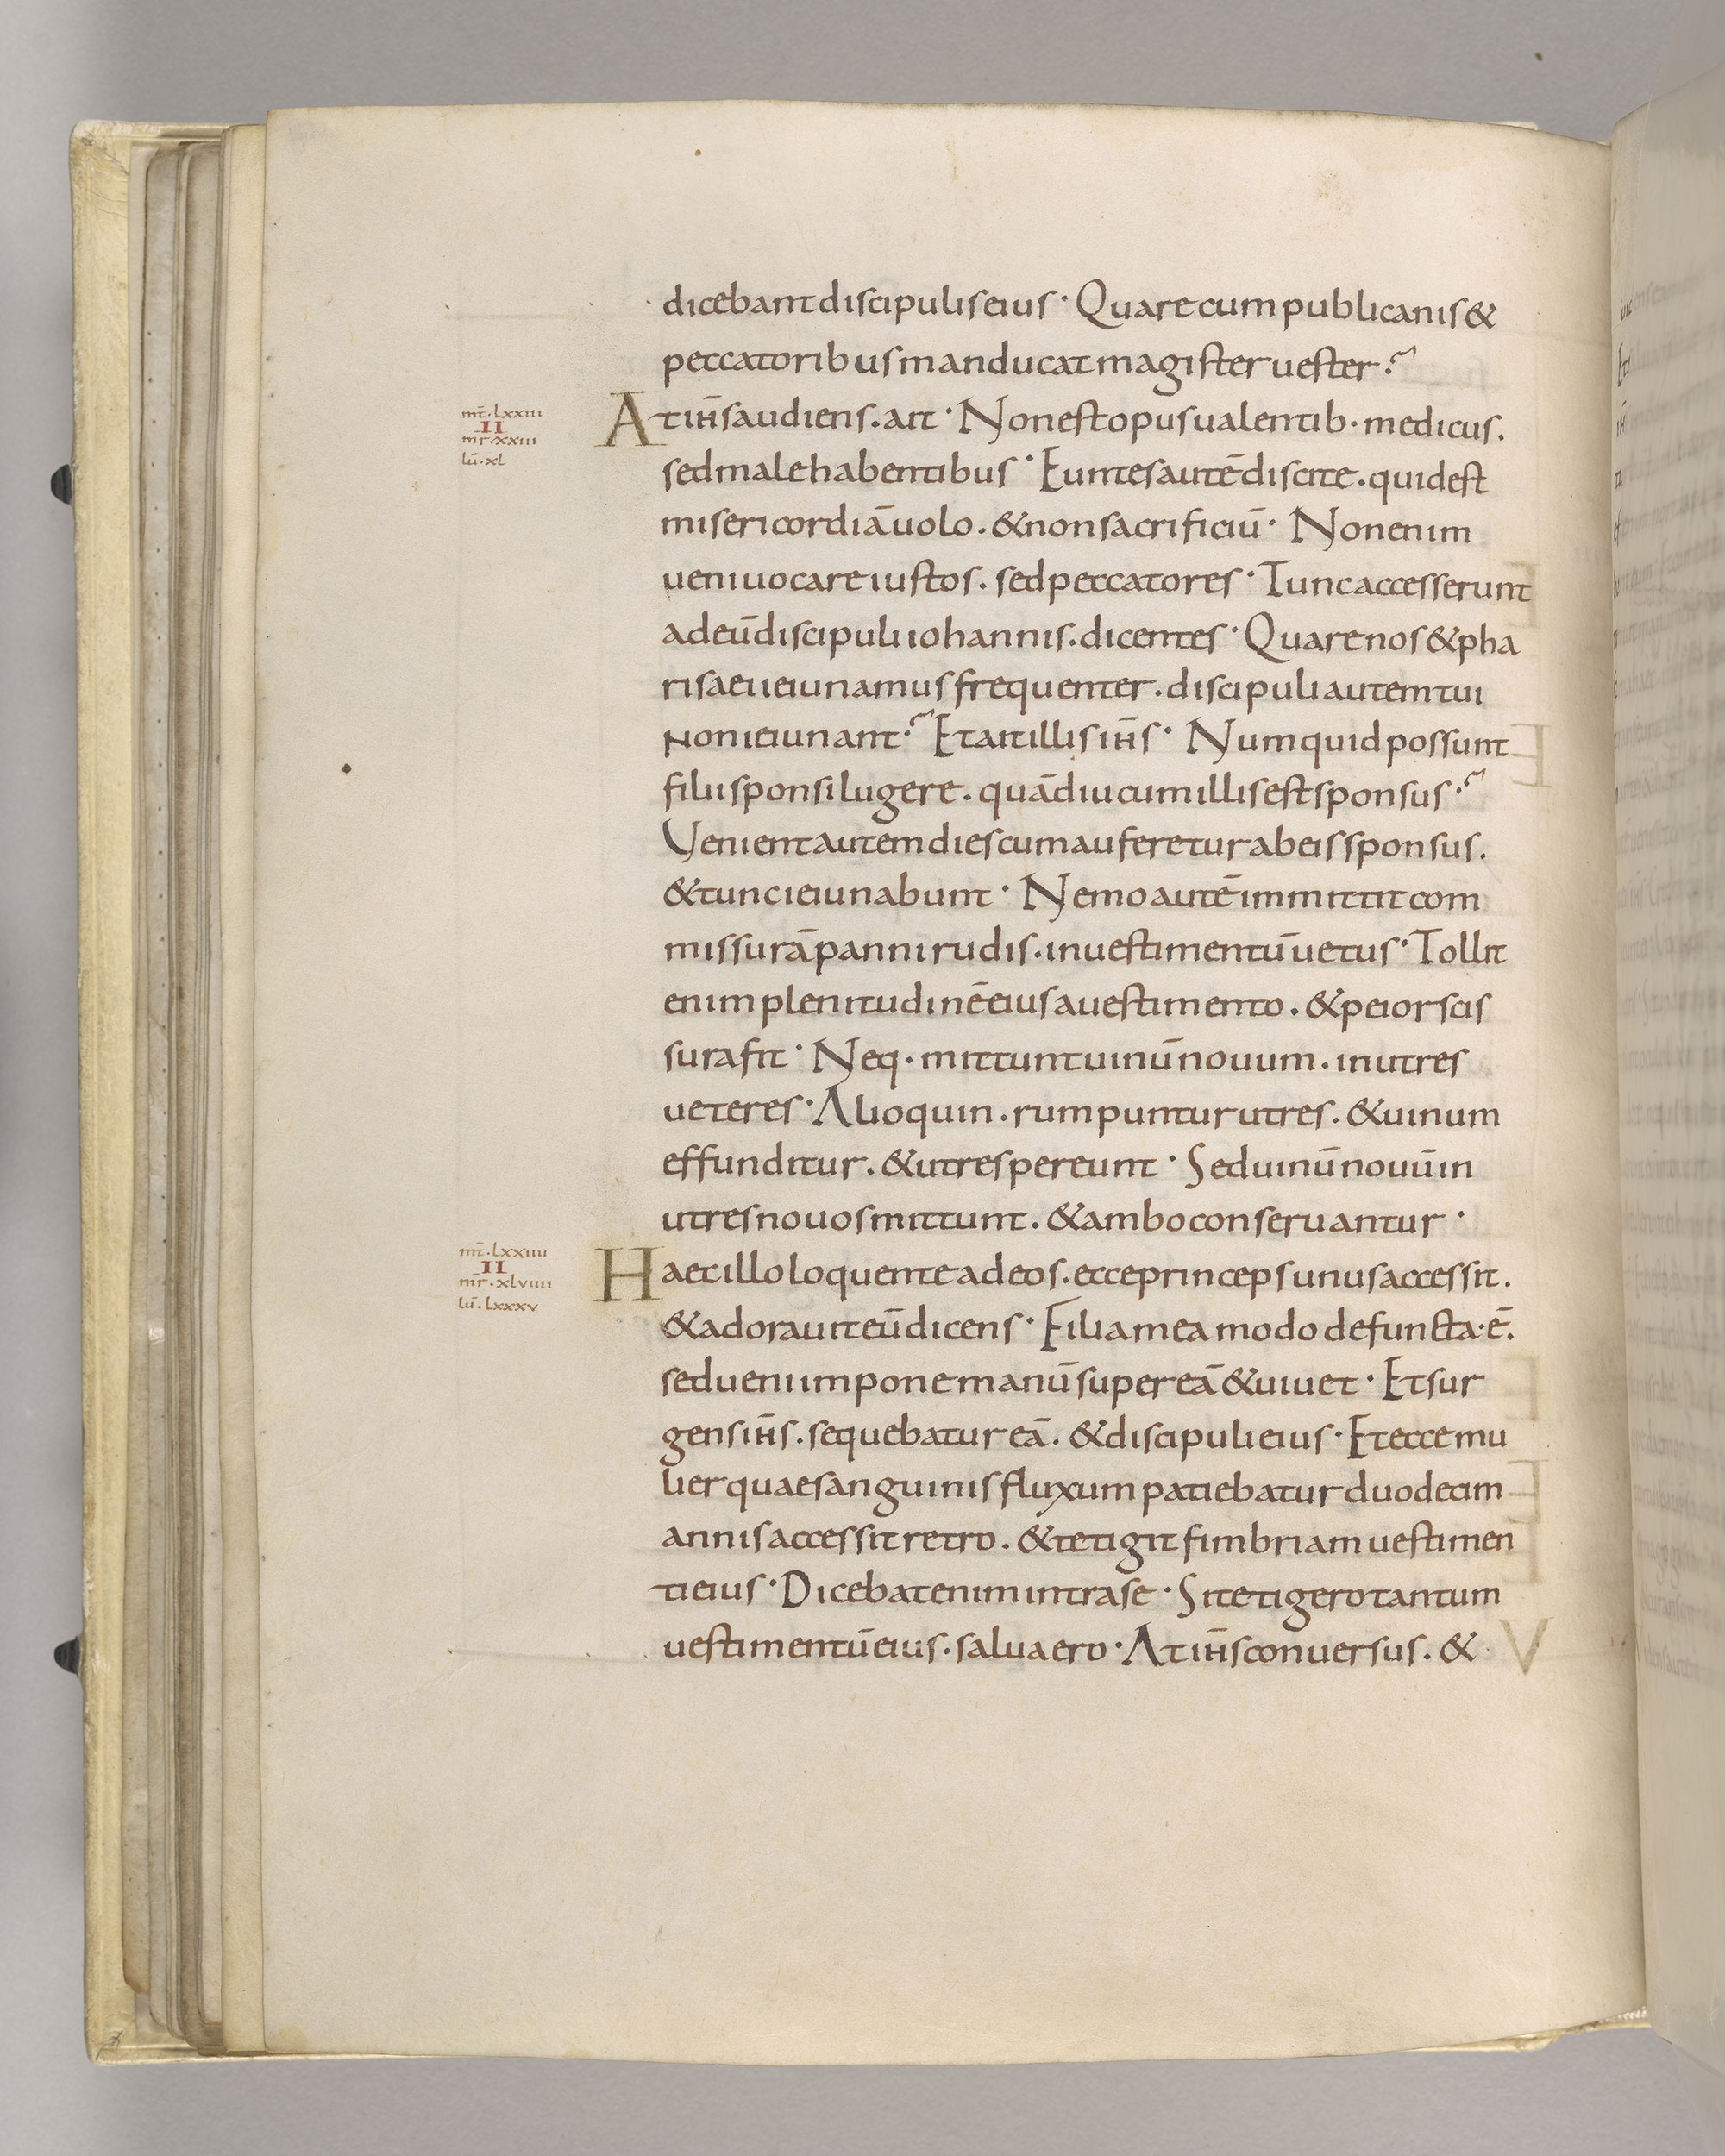 dicebant discipulis eius · Quare cum publicanis &
peccatoribus manducat magister uester ·
mt̄ · lxxiii
II
mr̄ · xxiii
lū · xl
At ih̄s audiens . ait · Non est opus ualentib · medicus .
sed male habentibus · Euntes autē discite . quid est
misericordiā uolo . & non sacrificiū · Non enim
ueni uocare iustos . sed peccatores · Tunc accesserunt
ad eū discipuli iohannis . dicentes · Quare nos & pha
risaei ieiunamus frequenter . discipuli autem tui
non ieiunant · Et ait illis ih̄s · Numquid possunt
filii sponsi lugere . quādiu cum illis est sponsus ·
Uenient autem dies cum auferetur ab eis sponsus .
& tunc ieiunabunt · Nemo autē immittit com
missurā panni rudis . in uestimentū uetus · Tollit
enim plenitudinē eius a uestimento . & peior scis
sura fit · Neq · mittunt uinū nouum . in utres
ueteres · Alioquin . rumpuntur utres . & uinum
effunditur . & utres pereunt · Sed uinū nouū in
utres nouos mittunt . & ambo conseruantur ·
mt̄ · lxxiiii
II
mr̄ · xlviiii
lū · lxxxv
Haec illo loquente ad eos . ecce princeps unus accessit .
& adorauit eū dicens · Filia mea modo defuncta · ē .
sed ueni impone manū super eā & uiuet · Et sur
gens ih̄s . sequebatur eā . & discipuli eius · Et ecce mu
lier quae sanguinis fluxum patiebatur duodecim
annis accessit retro . & tetigit fimbriam uestimen
ti eius · Dicebat enim intra se · Si tetigero tantum
uestimentū eius . salua ero · At ih̄s conuersus . &